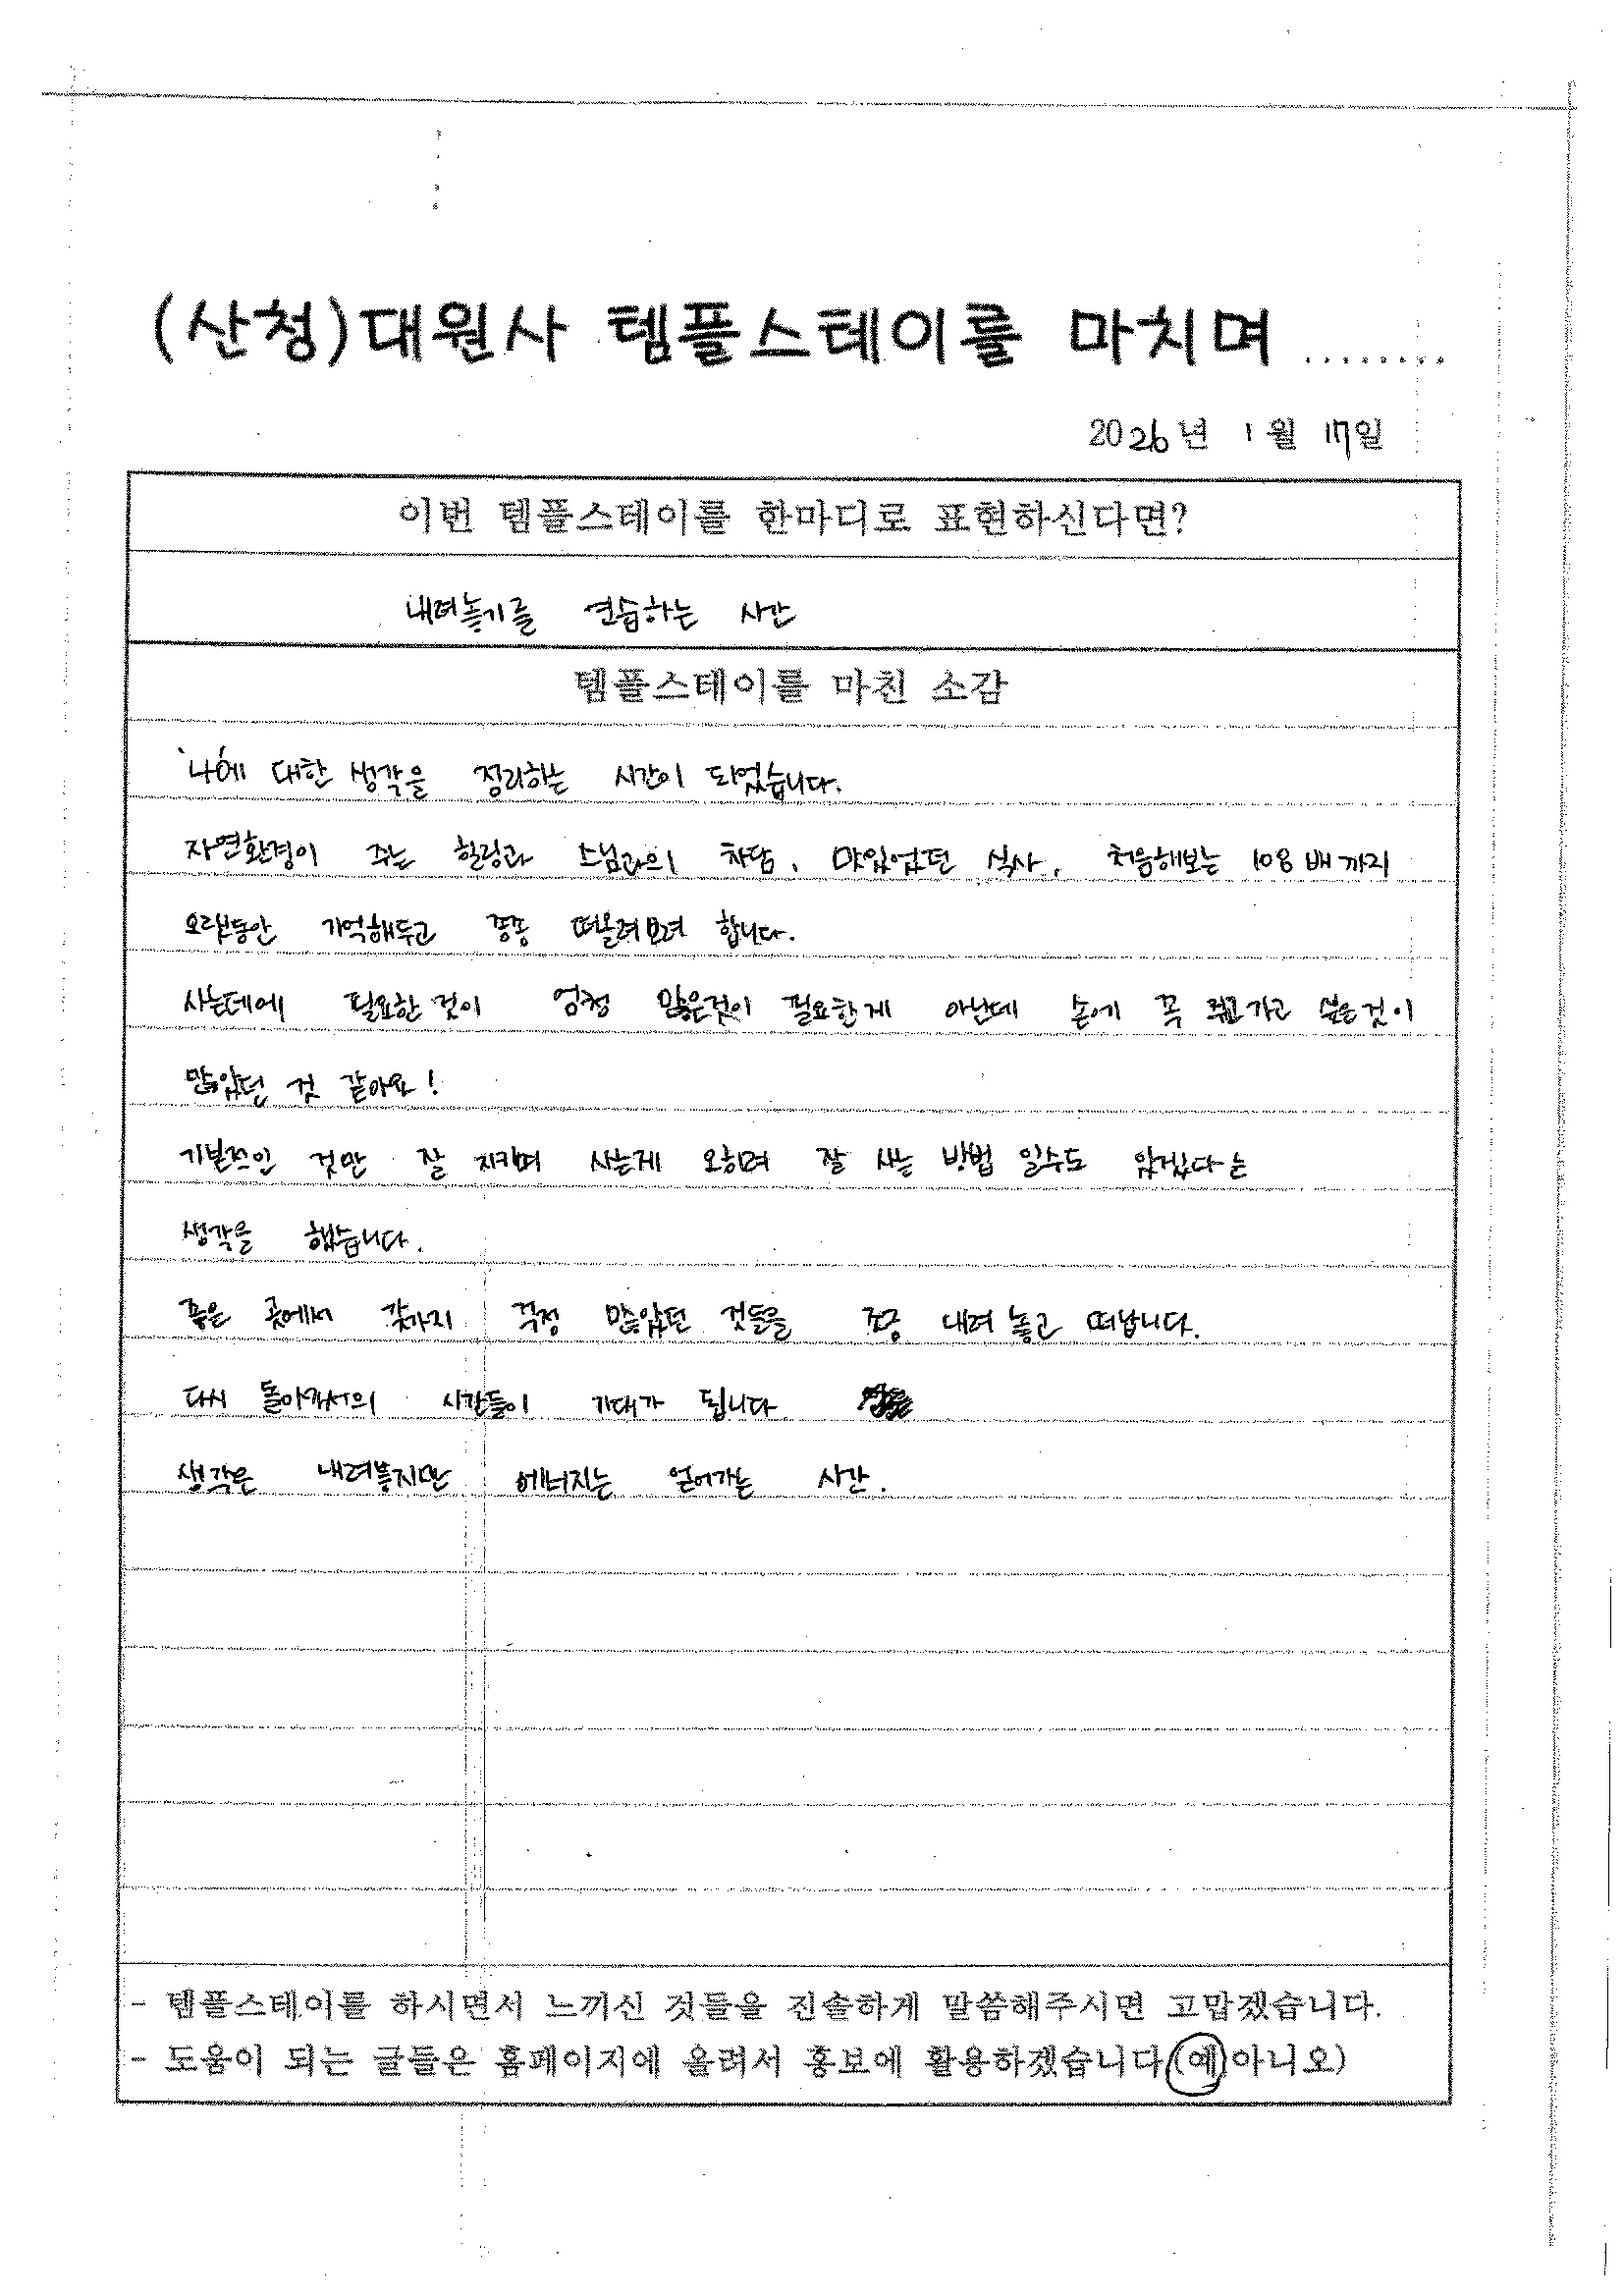 (산청)대원사 템플스테이를 마치며........
2026년 1월 17일
이번 템플스테이를 한마디로 표현하신다면?
내려놓기를 연습하는 시간
템플스테이를 마친 소감
'나'에 대한 생각을 정리하는 시간이 되었습니다.
자연환경이 주는 힐링과 스님과의 차담, 맛있었던 식사, 처음해보는 108배까지
오랫동안 기억해두고 종종 떠올려보려 합니다.
사는데에 필요한 것이 엄청 많은것이 필요한게 아닌데 손에 꼭 쥐고가고 싶은것이
많았던 것 같아요!
기본적인 것만 잘 지키며 사는게 오히려 잘 사는 방법 일수도 있겠다는
생각을 했습니다.
좋은 곳에서 갖가지 걱정 많았던 것들을 조금 내려 놓고 떠납니다.
다시 돌아가서의 시간들이 기대가 됩니다
생각은 내려놓지만 에너지는 얻어가는 시간.
- 템플스테이를 하시면서 느끼신 것들을 진솔하게 말씀해주시면 고맙겠습니다.
- 도움이 되는 글들은 홈페이지에 올려서 홍보에 활용하겠습니다(예/아니오)